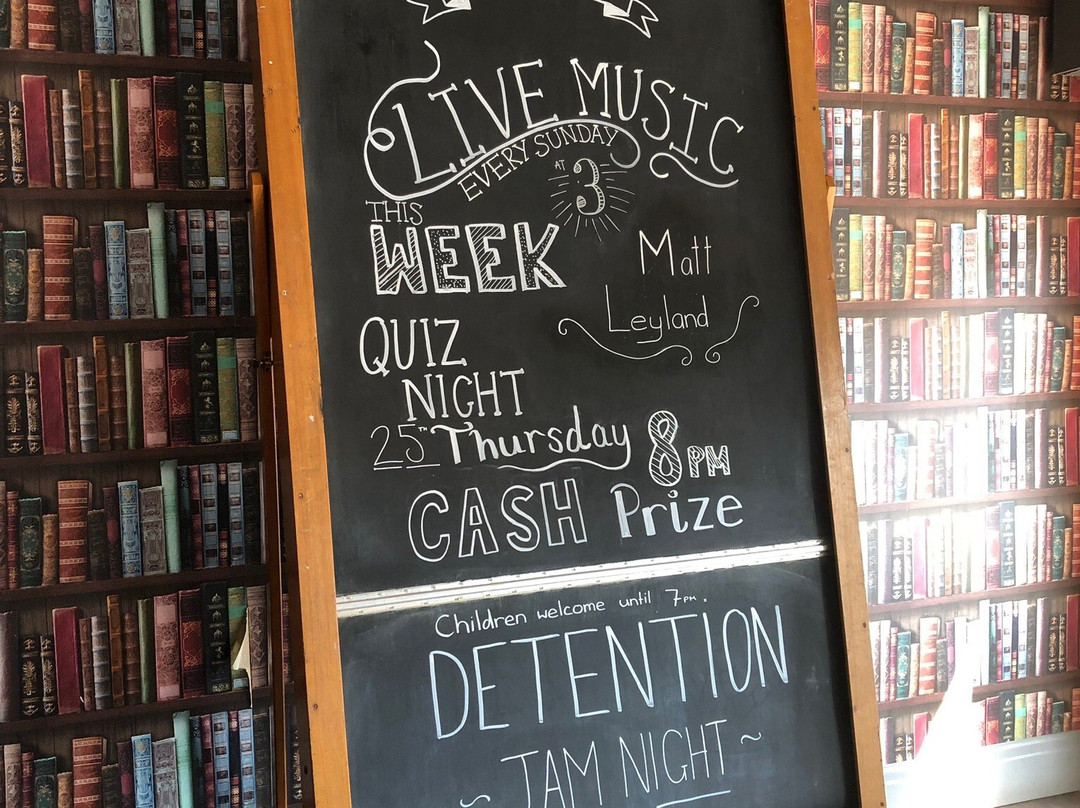 LIVE MUSIC
EVERY SUNDAY
AT 3
THIS
WEEK
Matt
Leyland
QUIZ
NIGHT
25TH Thursday 8PM
CASH Prize
Children welcome until 7pm.
DETENTION
~ JAM NIGHT ~